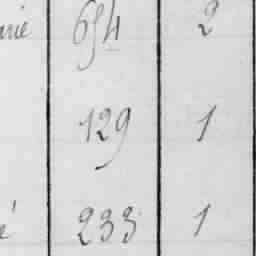 rié 654 2
129 1
é 233 1